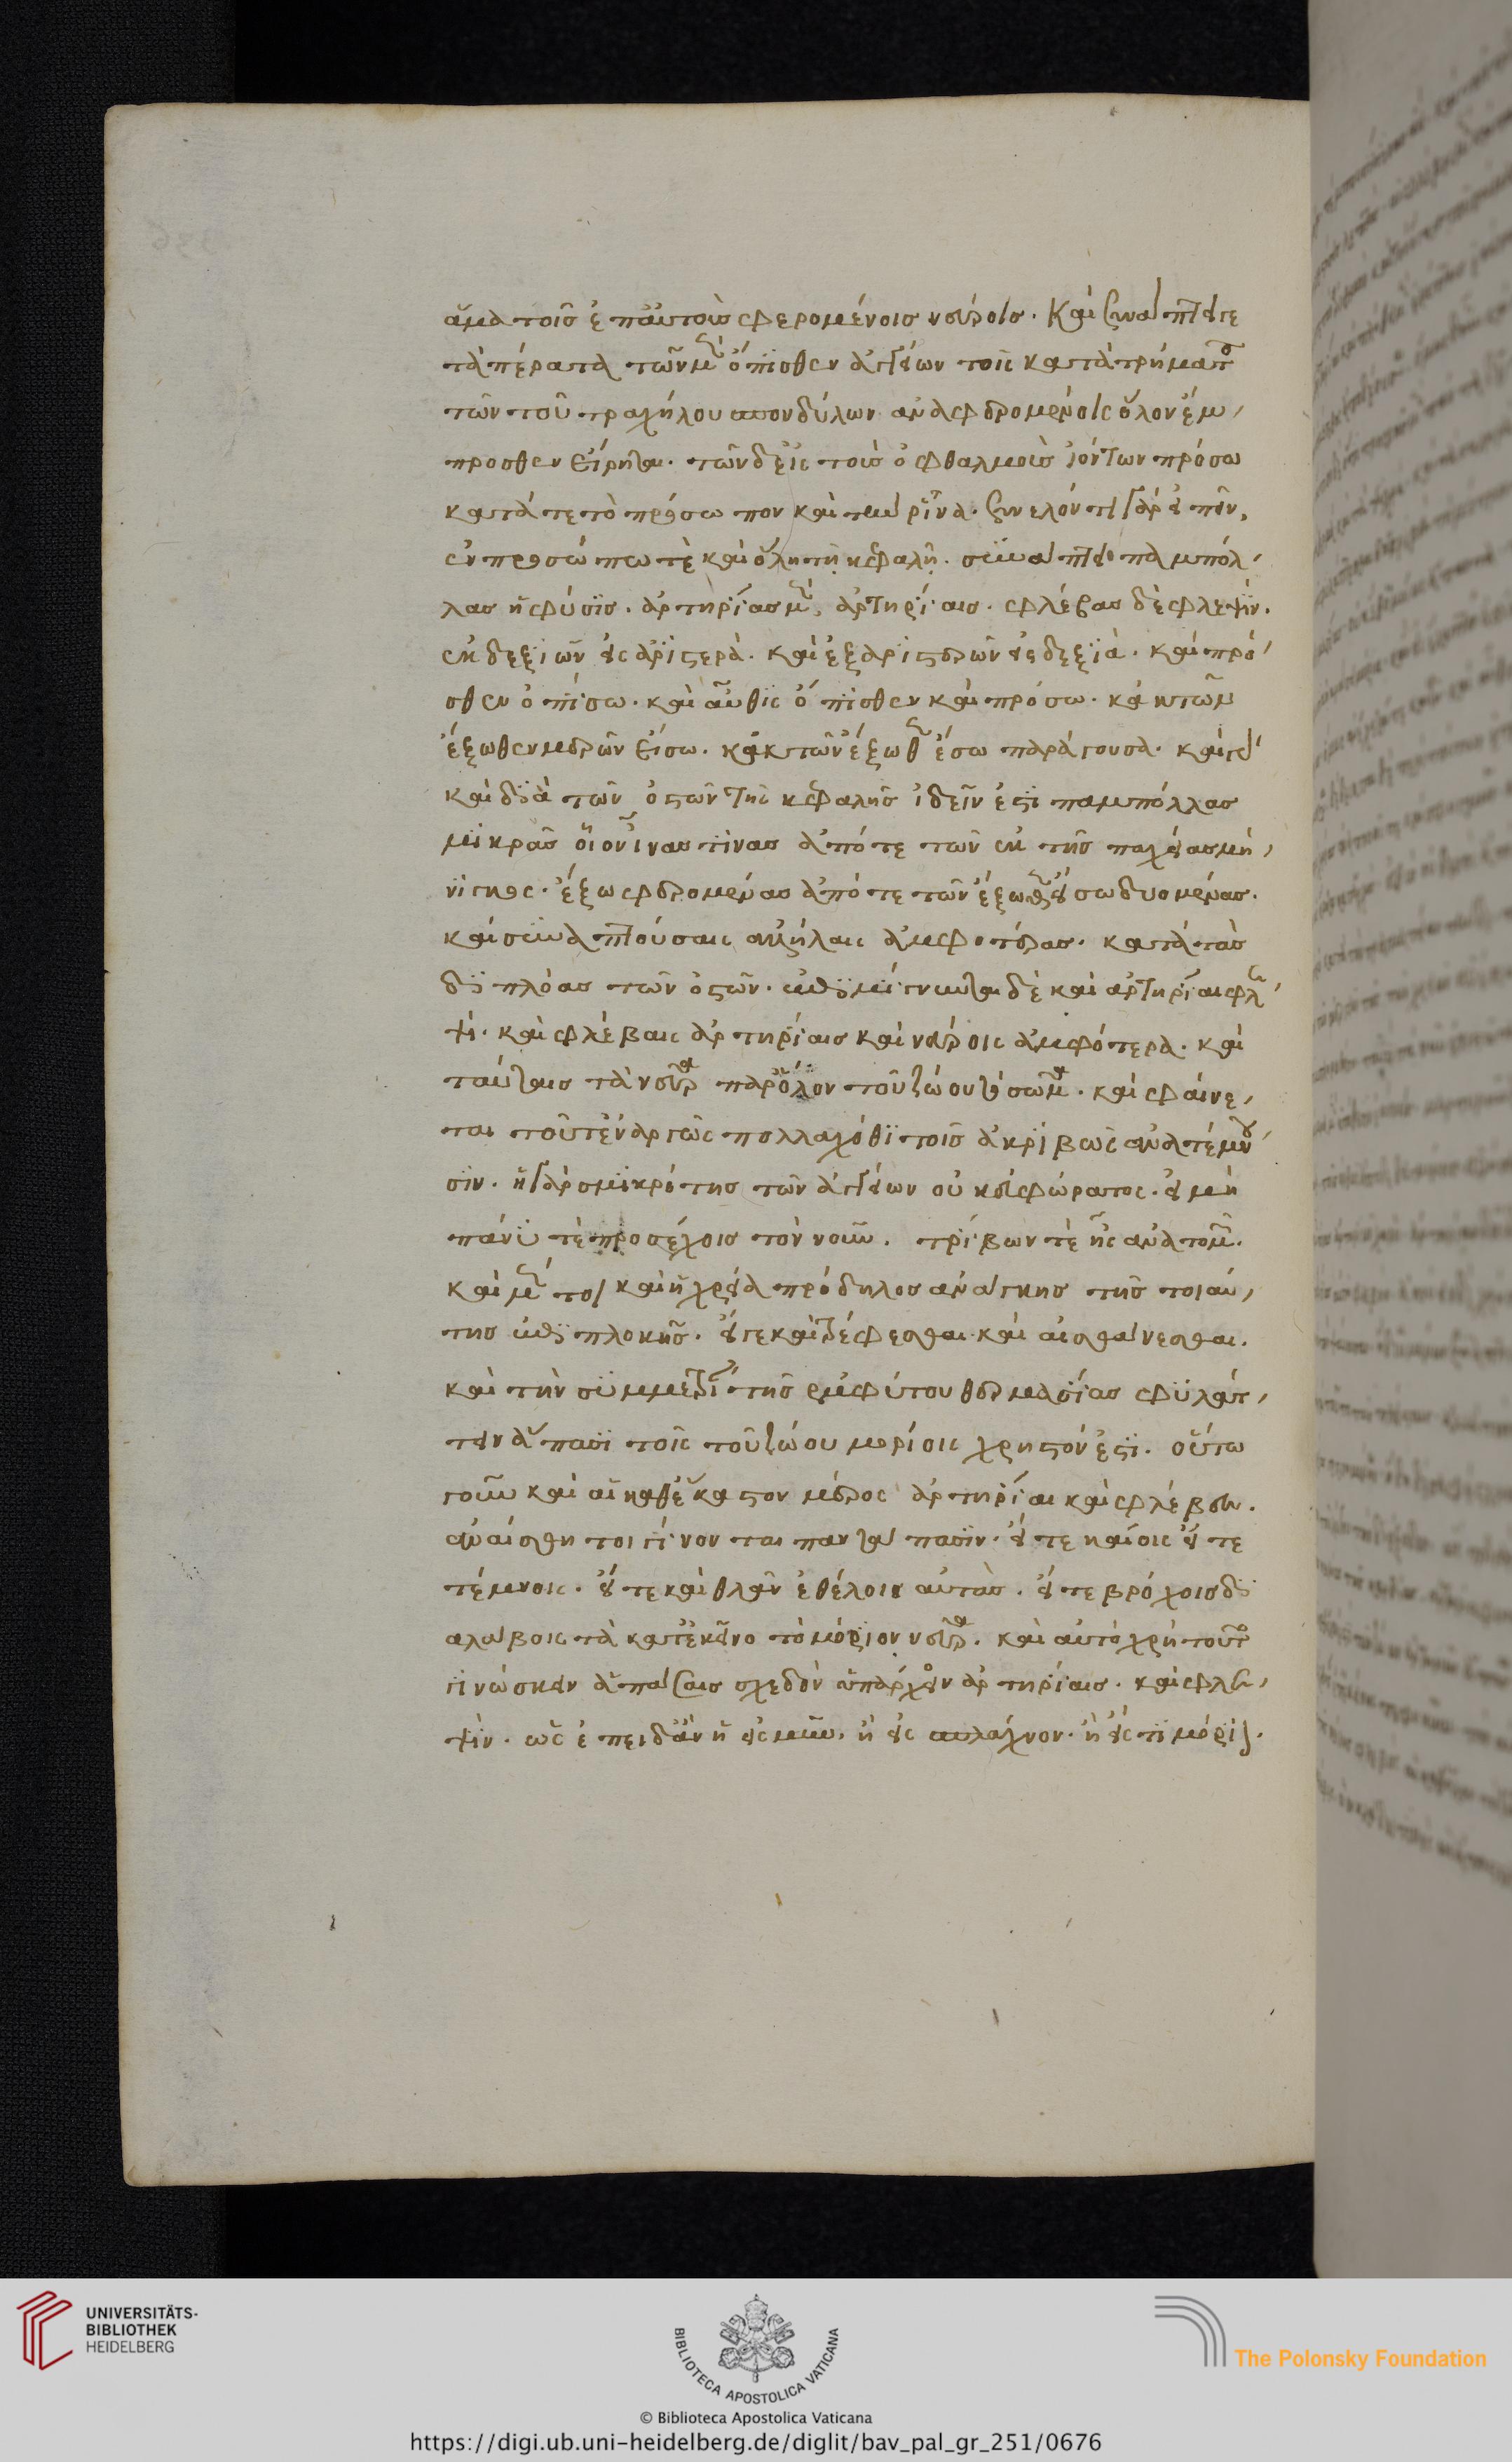 ἅμα τοῖς ἐπ' αὐτοὺς φερομένοις νεύροις. καὶ συνάπτει τε
τὰ πέρατα τῶν μὲν ὄπισθεν ἀγγείων τοῖς κατὰ τρήματα
τῶν τοῦ τραχήλου σπονδύλων ἀναφερομένοις ὅλον ἔμ
προσθεν εἴρηται. τῶν δ' εἰς τοὺς ὀφθαλμοὺς ἰόντων πρόσω
κατά τε τὸ πρόσωπον καὶ τὴν ῥῖνα. συνελόντι γὰρ εἰπεῖν,
ἐν προσώπω τὲ καὶ ὅλη τῇ κεφαλῇ. συνάπτει παμπόλ
λας ἡ φύσις. ἀρτηρίας μὲν ἀρτηρίαις. φλέβας δὲ φλεψίν.
ἐκ δεξιῶν εἰς ἀριστερὰ. καὶ ἐξ ἀριστερῶν εἰς δεξιὰ. καὶ πρό
σθεν ὀπίσω. καὶ αὖθις ὄπισθεν καὶ πρόσω. κἀκ τῶν
ἔξωθεν μερῶν εἴσω. κἀκ τῶν ἔξωθεν ἔσω παράγουσα. καί γε
καὶ διὰ τῶν ὀστῶν τῆς κεφαλῆς ἰδεῖν ἐστι παμπόλλας
μικρὰς οἷον ἶνας τινας ἀπό τε τῶν ἐκ τῆς παχείας μή
νιγγος. ἔξω φερομένας ἀπό τε τῶν ἔξωθεν εἴσω δυομένας.
καὶ συναπτούσαις ἀλλήλαις ἀμφοτέρας. κατὰ τὰς
διπλόας τῶν ὀστῶν. ἐπιμίγνυνται δὲ καὶ ἀρτηρίαι φλε
ψὶ. καὶ φλέβαις ἀρτηρίαις καὶ νεύροις ἀμφότερα. καὶ
ταύταις τὰ νεῦρα παρ' ὅλον τοῦ ζώου τὸ σῶμα. καὶ φαίνε
ται τοῦτ' ἐναργῶς πολλαχόθι τοῖς ἀκριβῶς ἀνατέμνου
σιν. ἡ γὰρ σμικρότης τῶν ἀγγείων οὐκ εὐφώρατος. εἰ μὴ
πάνυ τὲ προσέχοις τὸν νοῦν. τρίβων τὲ ἦς ἀνατομῶν.
καὶ μέν τοι καὶ ἡ χρεία πρόδηλος ἀνάγκης τῆς τοιαύ
της ἐπιπλοκῆς. εἴγε καὶ τρέφεσθαι καὶ αἰσθάνεσθαι.
καὶ τὴν συμμετρίαν τῆς ἐμφύτου θερμασίας φυλάτ
τειν ἅπασι τοῖς τοῦ ζώου μορίοις χρηστόν ἐστι. οὕτω
γοῦν καὶ αἱ καθ' ἕκαστον μέρος ἀρτηρίαι καὶ φλέβες.
ἀναίσθητοι γίνονται παντάπασιν. εἴ τε καίοις εἴ τε
τέμνοις. εἴ τε καὶ θλᾶν ἐθέλοις αὐτὰς. εἴ τε βρόχοις δι
αλάβοις τὰ κατ' ἐκεῖνο τὸ μόριον νεῦρα. καὶ αὐτὸ χρὴ τοῦτο
γινώσκειν ἁπάσαις σχεδὸν ὑπάρχειν ἀρτηρίαις. καὶ φλε
ψὶν. ὡς ἐπειδὰν ἢ εἰς μῦν. ἢ εἰς σπλάγχνον. ἢ εἴς τι μόριον.
UNIVERSITÄTS-
BIBLIOTHEK
HEIDELBERG
BIBLIOTECA APOSTOLICA VATICANA
The Polonsky Foundation
© Biblioteca Apostolica Vaticana
https://digi.ub.uni-heidelberg.de/diglit/bav_pal_gr_251/0676